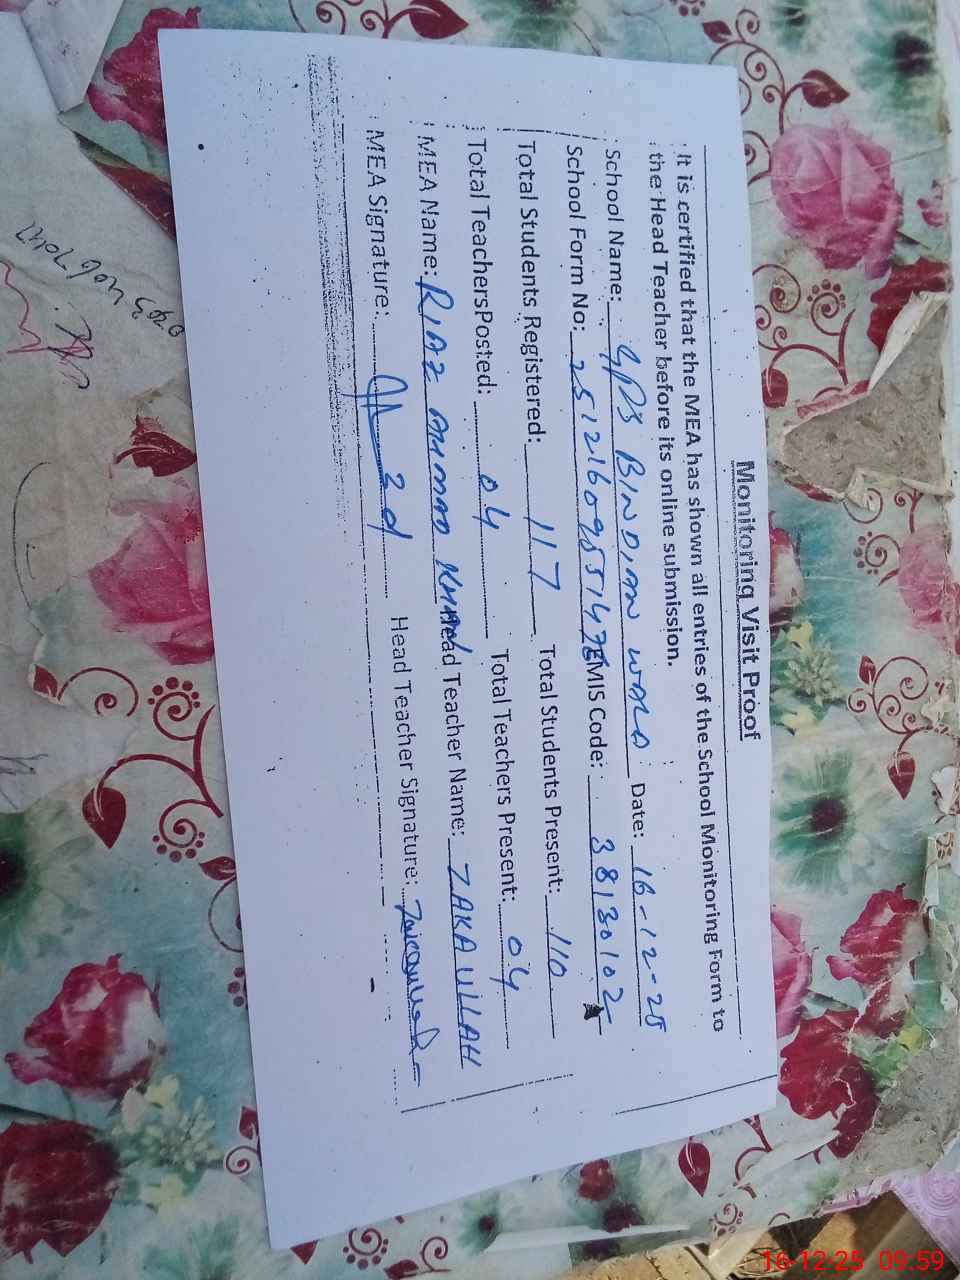 Monitoring Visit Proof
It is certified that the MEA has shown all entries of the School Monitoring Form to
the Head Teacher before its online submission.
School Name: GPS BINDIAN WALA Date: 16-12-25
School Form No: EMIS Code: 38130102
Total Students Registered: 117 Total Students Present: 110
Total TeachersPosted: 04 Total Teachers Present: 04
MEA Name: RIAZ AHMAD KHAN Head Teacher Name: ZAKA ULLAH
MEA Signature: Head Teacher Signature:
16-12-25 09:59